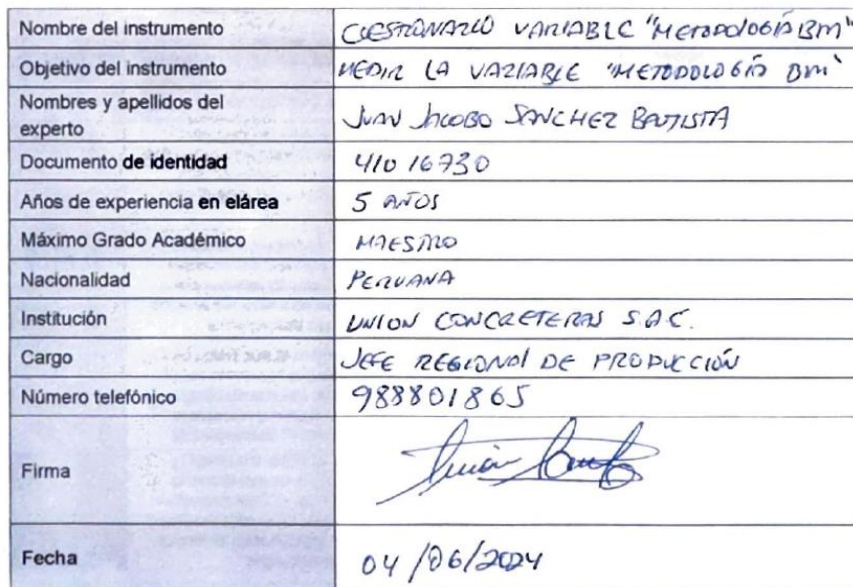 Nombre del instrumento CUESTIONARIO VARIABLE "METODOLOGÍA BIM"
Objetivo del instrumento MEDIR LA VARIABLE "METODOLOGÍA BIM"
Nombres y apellidos del
experto JUAN JACOBO SANCHEZ BAUTISTA
Documento de identidad 41016730
Años de experiencia en elárea 5 AÑOS
Máximo Grado Académico MAESTRO
Nacionalidad PERUANA
Institución UNION CONCRETERAS S.A.C.
Cargo JEFE REGIONAL DE PRODUCCIÓN
Número telefónico 988801865
Firma
Fecha 04/06/2024